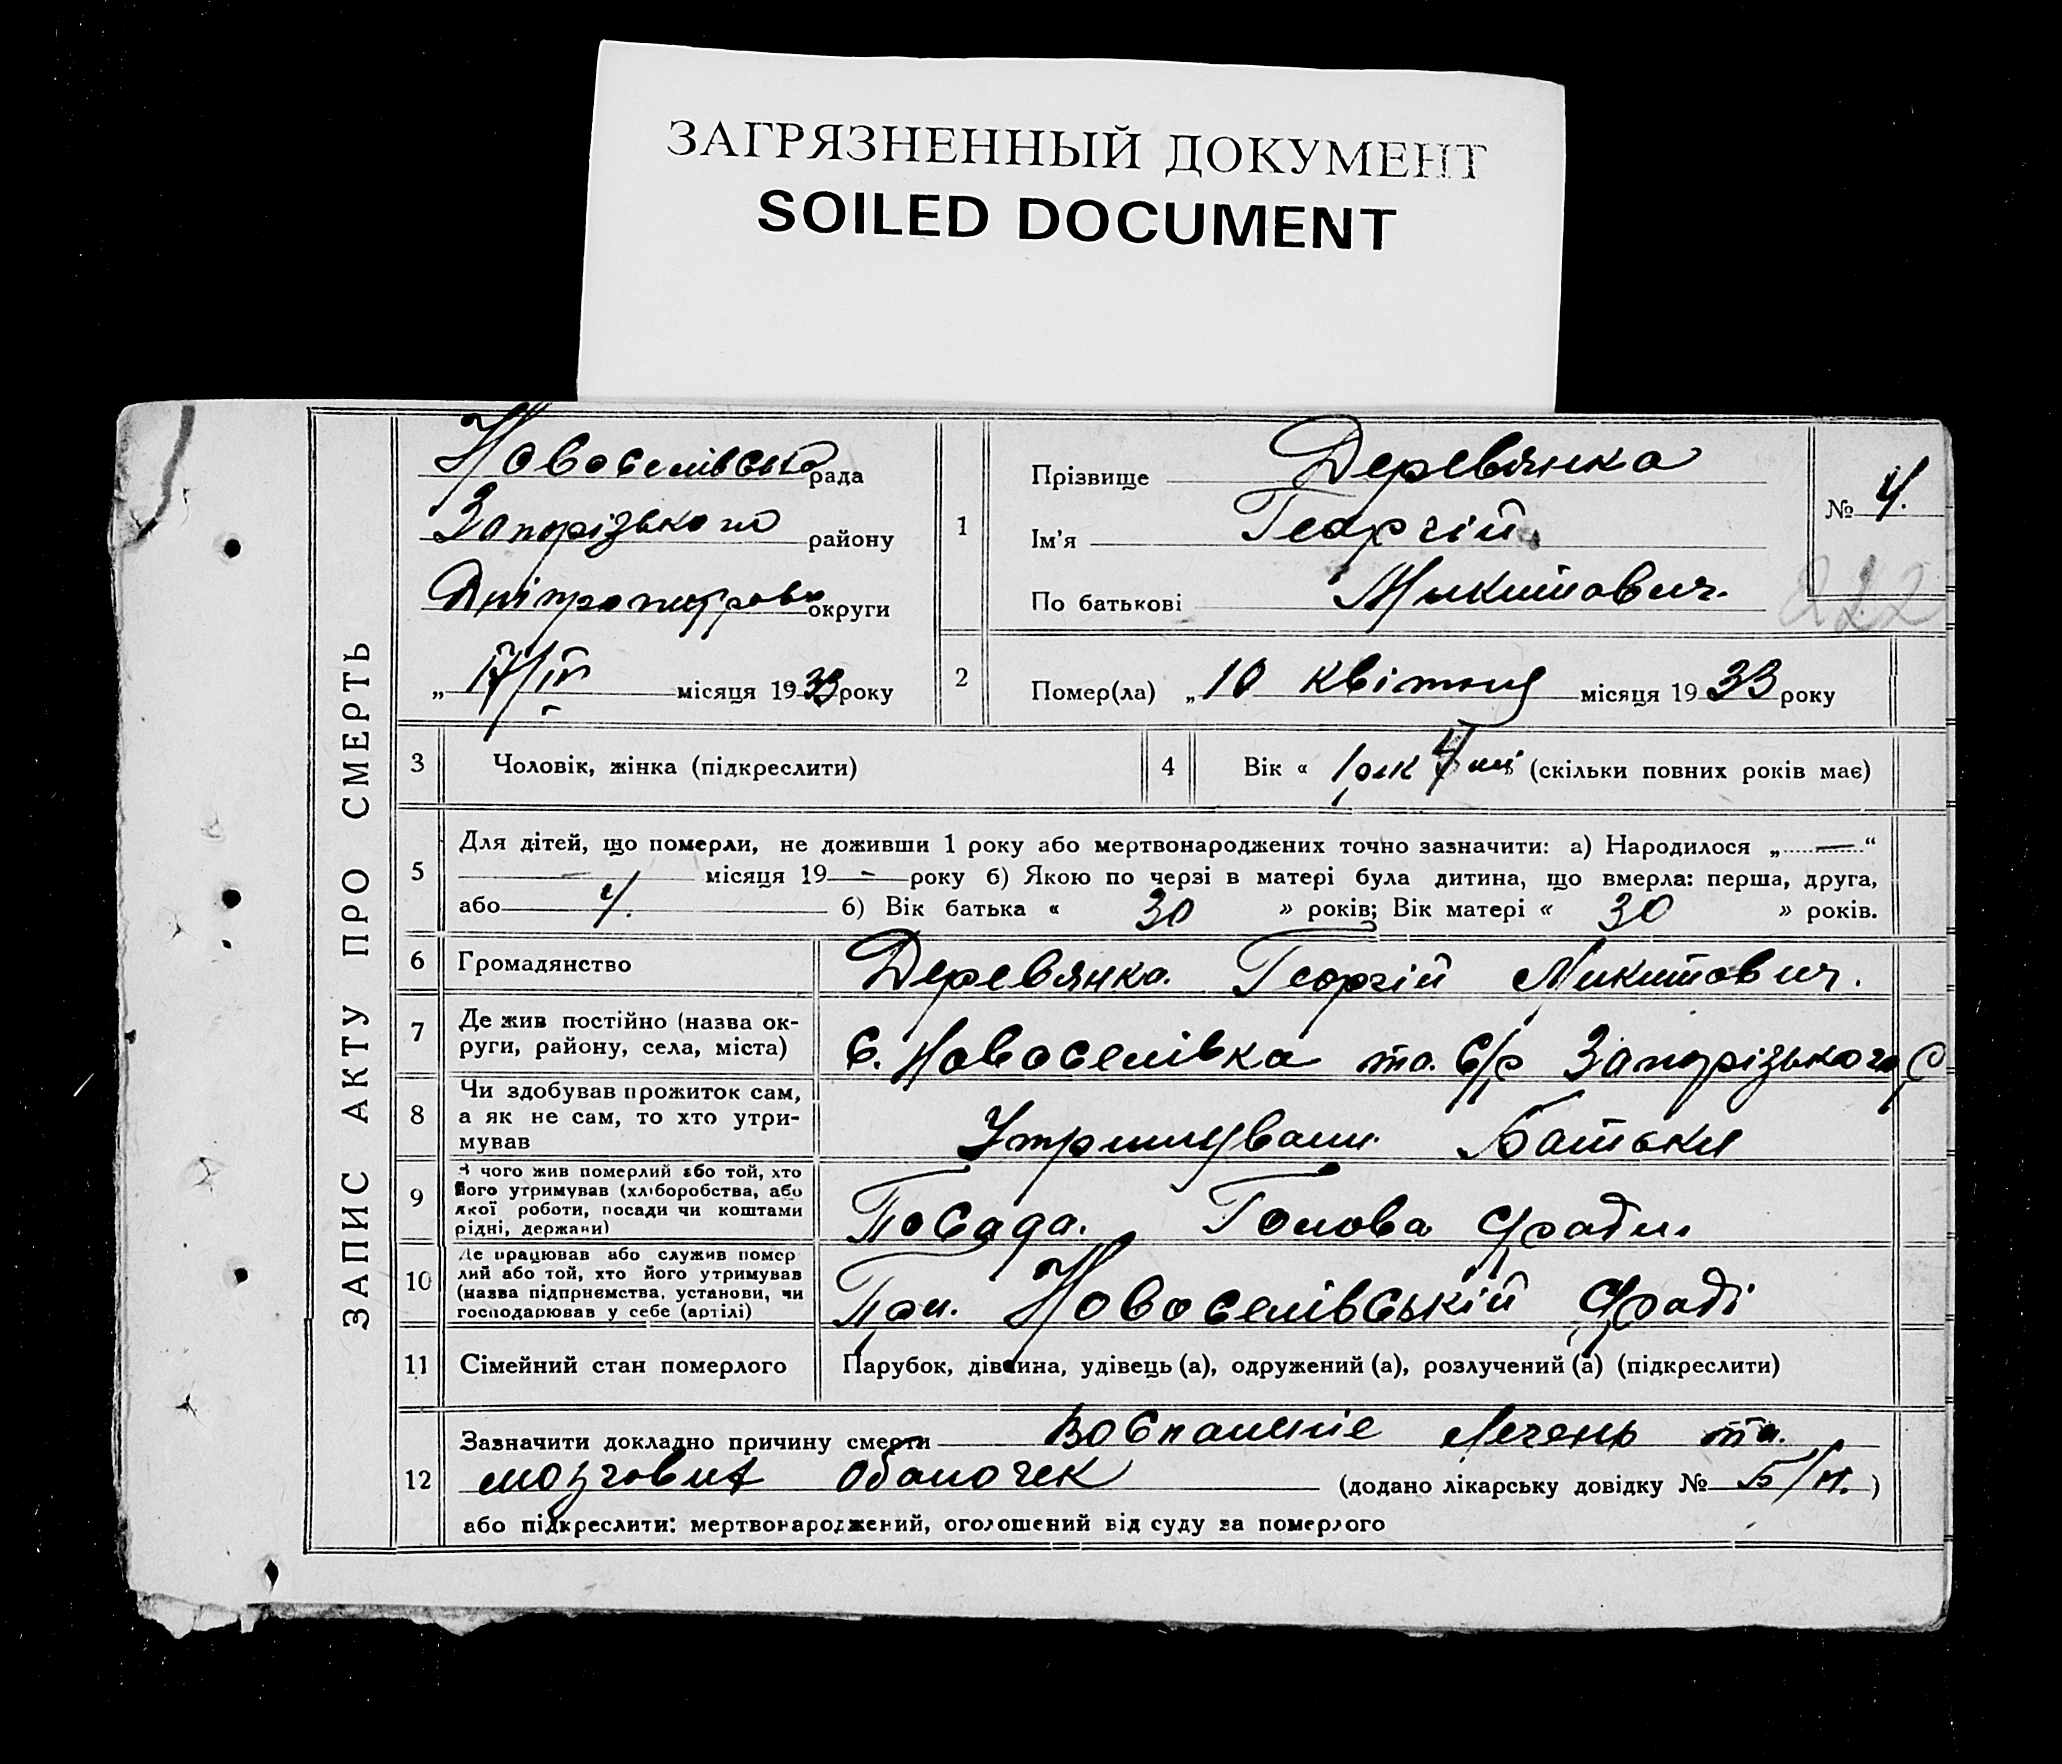 ЗАГРЯЗНЕННЫЙ ДОКУМЕНТ
SOILED DOCUMENT
ЗАПИС АКТУ ПРО СМЕРТЬ
Новоселівська рада
Запорізького району
Дніпропетровс округи
„ 17/IV місяця 1933 року
1
Прізвище Деревянка
Ім'я Георгій
По батькові Микитович.
№ 4.
222
2
Помер(ла) „10 квітня місяця 1933 року
3 Чоловік, жінка (підкреслити)
4 Вік « 1 рік 4 міс (скільки повних років має)
5 Для дітей, що померли, не доживши 1 року або мертвонароджених точно зазначити: а) Народилося „ — “
— місяця 19 - року б) Якою по черзі в матері була дитина, що вмерла: перша, друга,
або 4. б) Вік батька « 30 » років; Вік матері « 30 » років.
6 Громадянство Деревянка. Георгій Микитович.
7 Де жив постійно (назва ок-
руги, району, села, міста)
с. Новоселівка та. С/р Запорізького р
8 Чи здобував прожиток сам,
а як не сам, то хто утри-
мував
Утримували Батьки
9 З чого жив померлий або той, хто
його утримував (хліборобства, або
якої роботи, посади чи коштами
рідні, держави)
Посада. Голова с/ради
10 Де працював або служив помер
лий або той, хто його утримував
(назва підприємства, установи, чи
господарював у себе (артілі)
При. Новоселівській с/раді
11 Сімейний стан померлого Парубок, дівчина, удівець (а), одружений (а), розлучений (а) (підкреслити)
12 Зазначити докладно причину смерти Воспаленіе Легень та.
мозгових оболочек (додано лікарську довідку № Б/н. )
або підкреслити: мертвонароджений, оголошений від суду за померлого